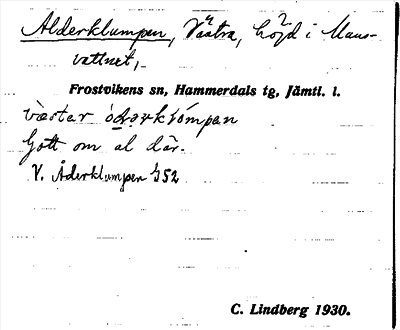 Alderklumpen, Västra, höjd i Maus-
vattnet,
Frostvikens sn, Hammerdals tg, Jämtl. l.
västar óḍarklómpan
Gott om al där.
V. Åderklumpen 352
C. Lindberg 1930.